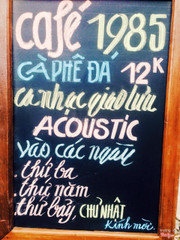 café 1985
CÀ PHÊ ĐÁ 12K
ca nhạc giao lưu
ACOUSTIC
vào các ngày
thứ ba
thứ năm
thứ bảy, CHỦ NHẬT
Kính mời